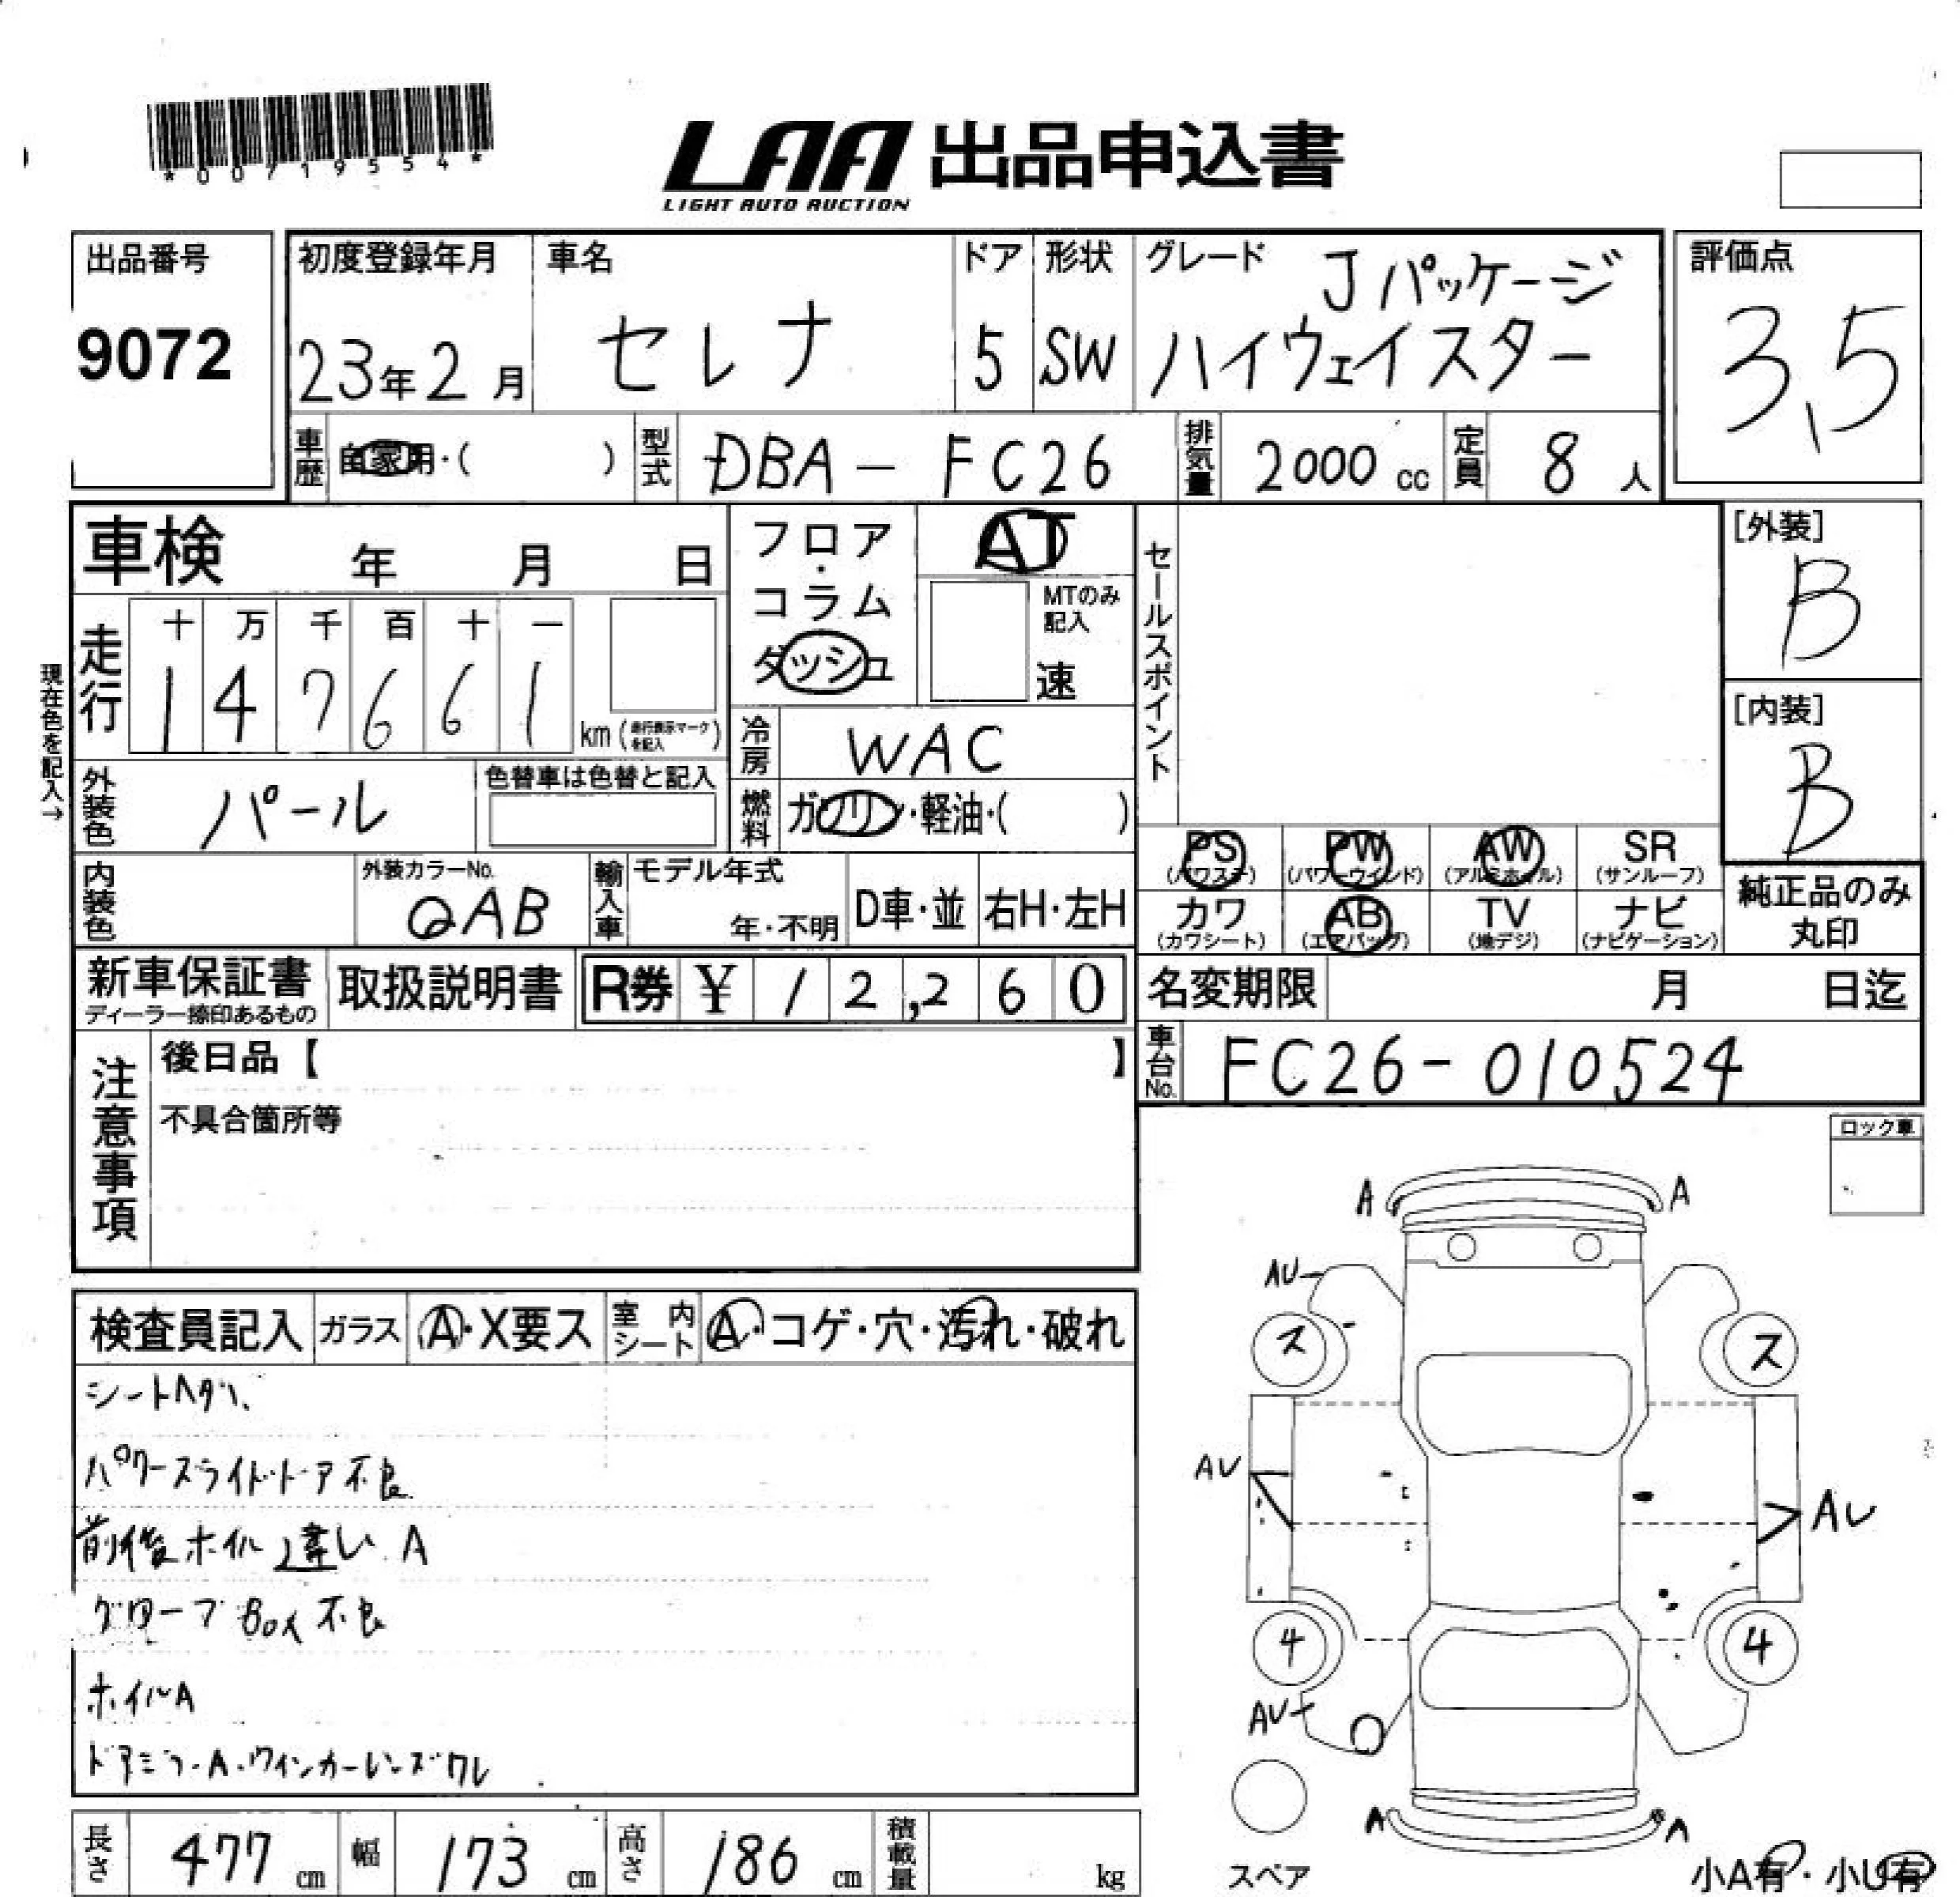 *00719554*
LAA 出品申込書
LIGHT AUTO AUCTION
出品番号
9072
初度登録年月
23年2月
車名
セレナ
ドア
5
形状
SW
グレード
Jパッケージ
ハイウェイスター
評価点
3.5
車歴
自家用・( )
型式
DBA-FC26
排気量
2000 cc
定員
8 人
車検 年 月 日
フロア・
コラム
ダッシュ
AT
MTのみ
記入
速
セールスポイント
[外装]
B
[内装]
B
現在色を記入→
走行
十 万 千 百 十 一
1 4 7 6 6 1
km (走行表示マークを記入)
冷房
WAC
外装色
パール
色替車は色替と記入
燃料
ガソリン・軽油・( )
PS
(パワステ)
PW
(パワーウインド)
AW
(アルミホイル)
SR
(サンルーフ)
カワ
(カワシート)
AB
(エアバッグ)
TV
(地デジ)
ナビ
(ナビゲーション)
純正品のみ
丸印
内装色
外装カラーNo.
QAB
輸入車
モデル年式
年・不明
D車・並
右H・左H
新車保証書
ディーラー捺印あるもの
取扱説明書
R券 ¥ 12,260
名変期限 月 日迄
車台No.
FC26-010524
注意事項
後日品【 】
不具合箇所等
ロック車
検査員記入
ガラス
A・X要ス
室内
シート
A・コゲ・穴・汚れ・破れ
シートヘタリ、
パワースライドドア不良
前後ホイル違い A
グローブBOX不良
ホイルA
ドアミラーA・ウインカーレンズワレ
A A
AU
ス ス
AU
AU
4 4
AU
A A
スペア
小A有・小U有
長さ
477 cm
幅
173 cm
高さ
186 cm
積載量
kg